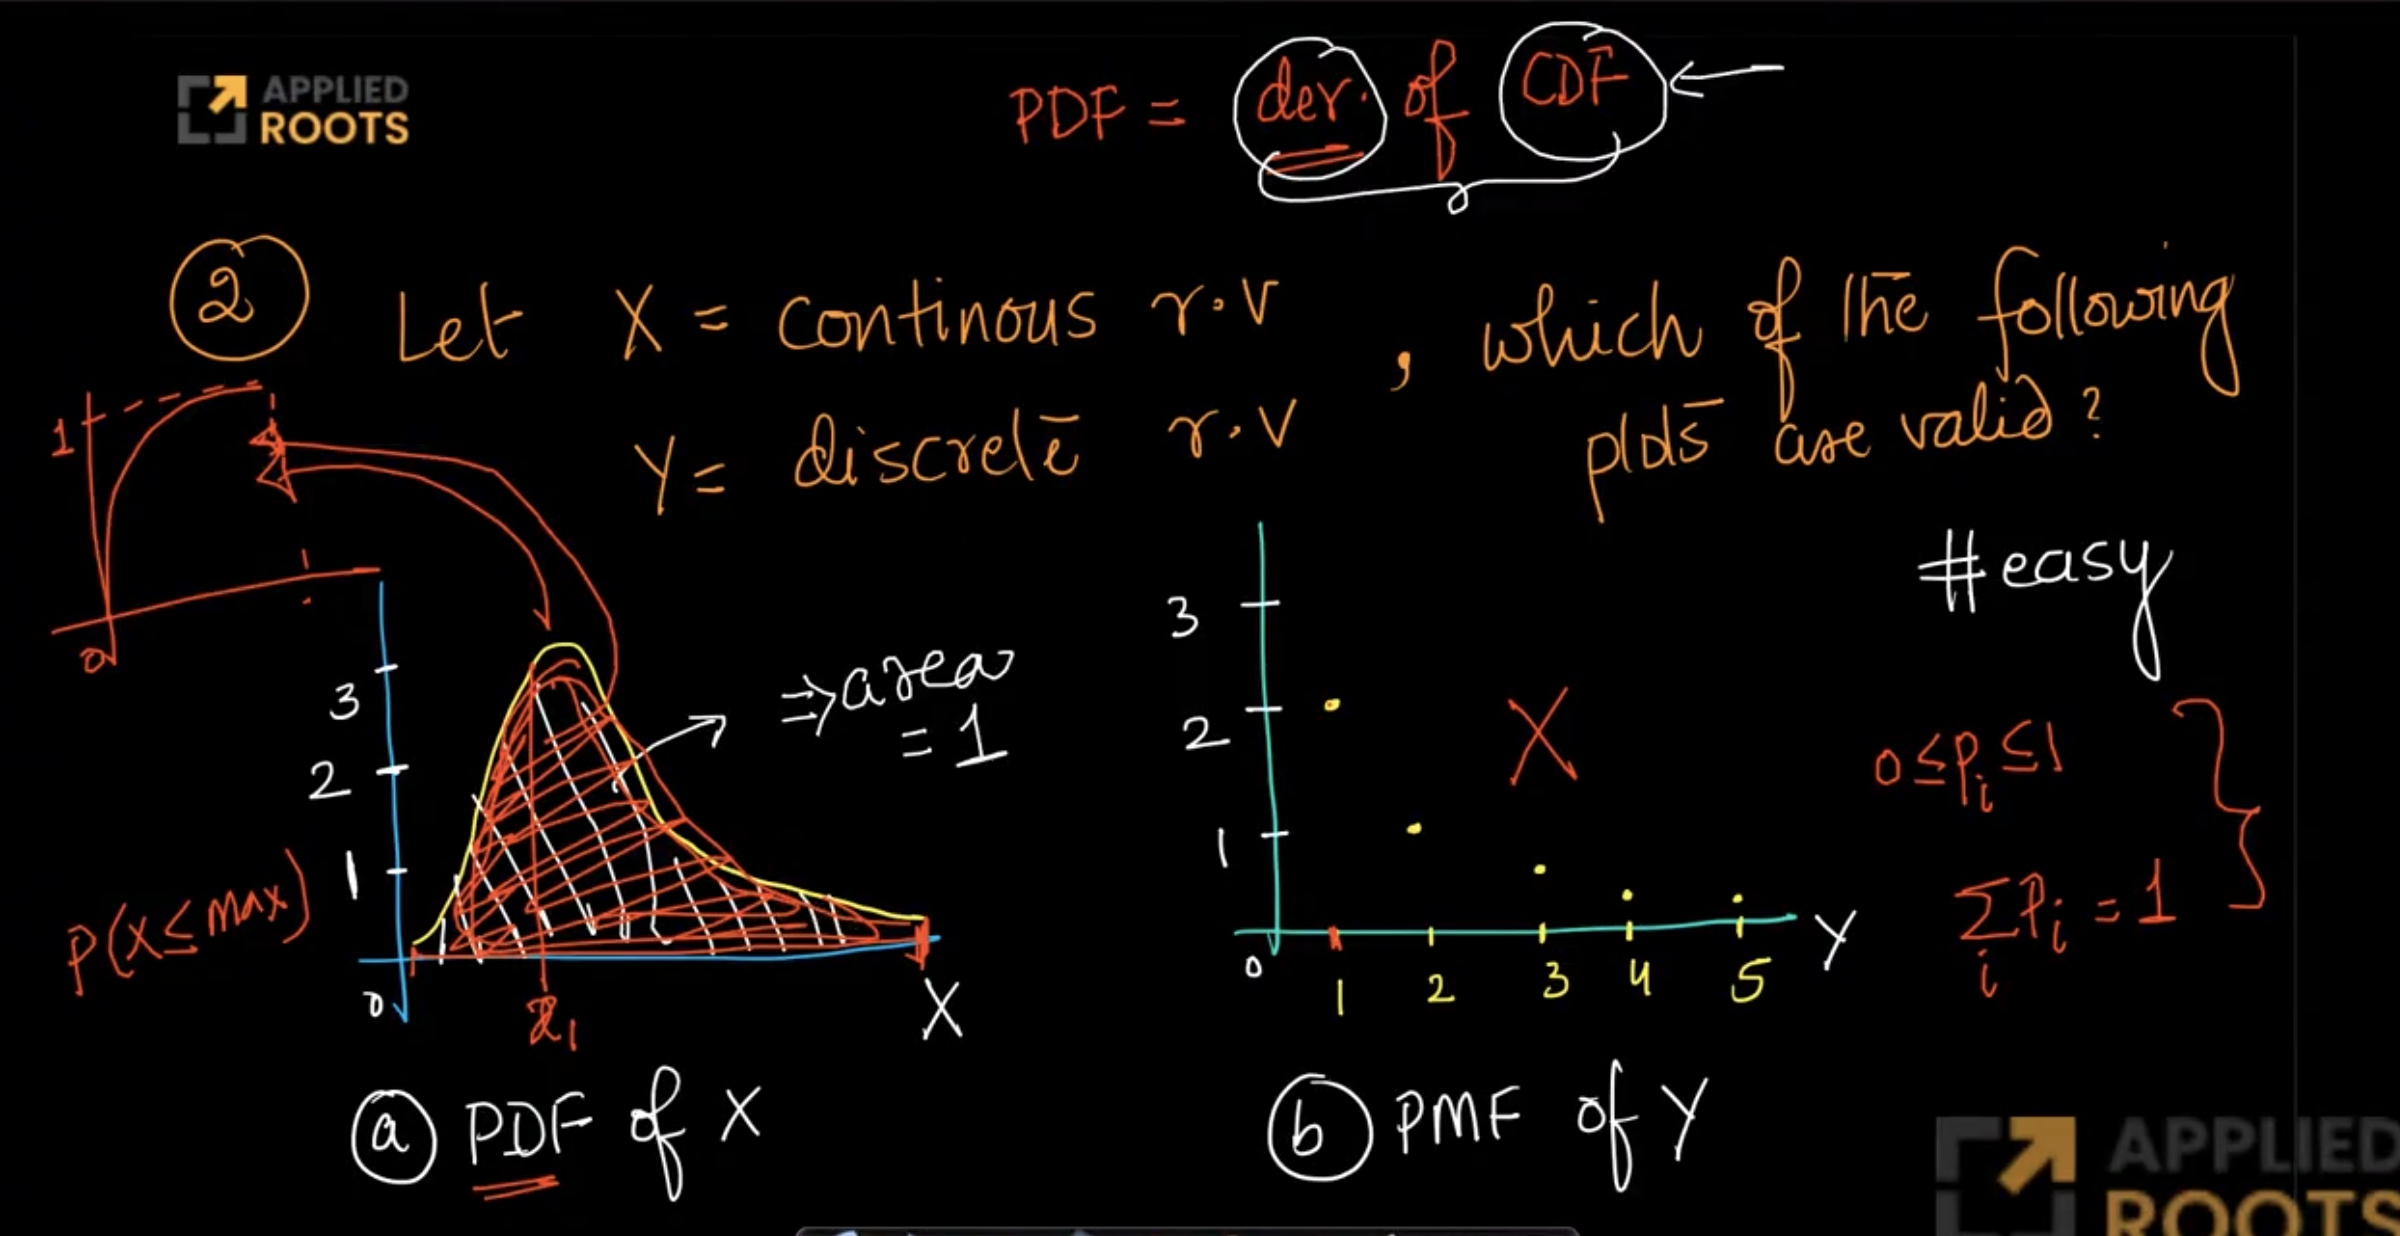 APPLIED
ROOTS
PDF = der. of CDF
2
Let X = continous r.v
Y = discrete r.v
, which of the following
plots are valid?
#easy
1
0
3
2
1
0
P(X ≤ max)
⇒ area
= 1
x₁
X
3
2
1
0
X
1 2 3 4 5
Y
0 ≤ Pᵢ ≤ 1
∑ᵢ Pᵢ = 1
a PDF of X
b PMF of Y
APPLIED
ROOTS